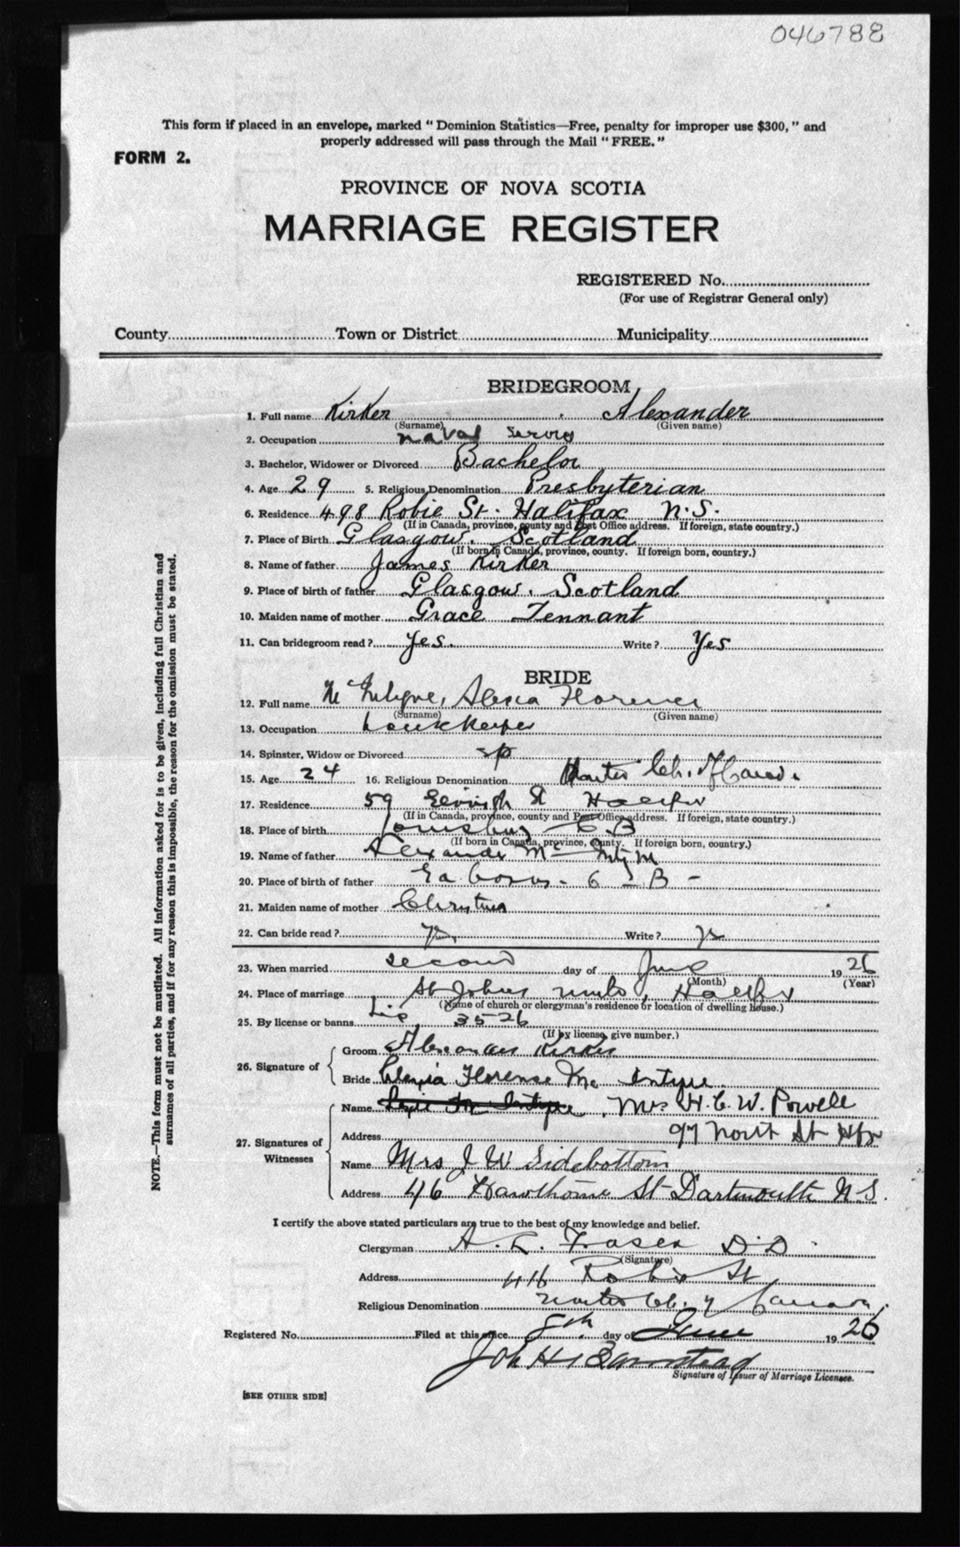 046788
This form if placed in an envelope, marked "Dominion Statistics—Free, penalty for improper use $300," and
properly addressed will pass through the Mail "FREE."
FORM 2.
PROVINCE OF NOVA SCOTIA
MARRIAGE REGISTER
REGISTERED No.
(For use of Registrar General only)
County Town or District Municipality
BRIDEGROOM
1. Full name Kirker Alexander
(Surname) (Given name)
2. Occupation Naval
3. Bachelor, Widower or Divorced Bachelor
4. Age 29 5. Religious Denomination Presbyterian
6. Residence 498 Robie St. Halifax N.S.
(If in Canada, province, county and Post Office address. If foreign, state country.)
7. Place of Birth Glasgow. Scotland
(If born in Canada, province, county. If foreign born, country.)
8. Name of father James Kirker
9. Place of birth of father Glasgow. Scotland
10. Maiden name of mother Grace Tennant
11. Can bridegroom read? Yes. Write? Yes
BRIDE
12. Full name Florence
(Surname) (Given name)
13. Occupation Housekeeper
14. Spinster, Widow or Divorced sp
15. Age 24 16. Religious Denomination United Ch. of Canada
17. Residence 59 St Halifax
(If in Canada, province, county and Post Office address. If foreign, state country.)
18. Place of birth Louisburg C.B
(If born in Canada, province, county. If foreign born, country.)
19. Name of father Alexander
20. Place of birth of father Gabarus C B
21. Maiden name of mother Christina
22. Can bride read? Write?
23. When married second day of June 1926
(Month) (Year)
24. Place of marriage St Johns Halifax
(Name of church or clergyman's residence or location of dwelling house.)
25. By license or banns Lic 3526
(If by license, give number.)
26. Signature of
Groom Alexander Kirker
Bride Florence Mc Intyre
27. Signatures of Witnesses
Name Mrs H. C. W. Powell
Address 97 North St Hfx
Name Mrs J W Sidebottom
Address 46 Hawthorne St Dartmouth N.S.
I certify the above stated particulars are true to the best of my knowledge and belief.
Clergyman Fraser D.D
(Signature)
Address 416 Robie St
Religious Denomination United Ch. of Canada
Registered No. Filed at this office 8th day of June 1926
Signature of Issuer of Marriage Licenses.
[SEE OTHER SIDE]
NOTE.—This form must not be mutilated. All information asked for is to be given, including full Christian and
surnames of all parties, and if for any reason this is impossible, the reason for the omission must be stated.